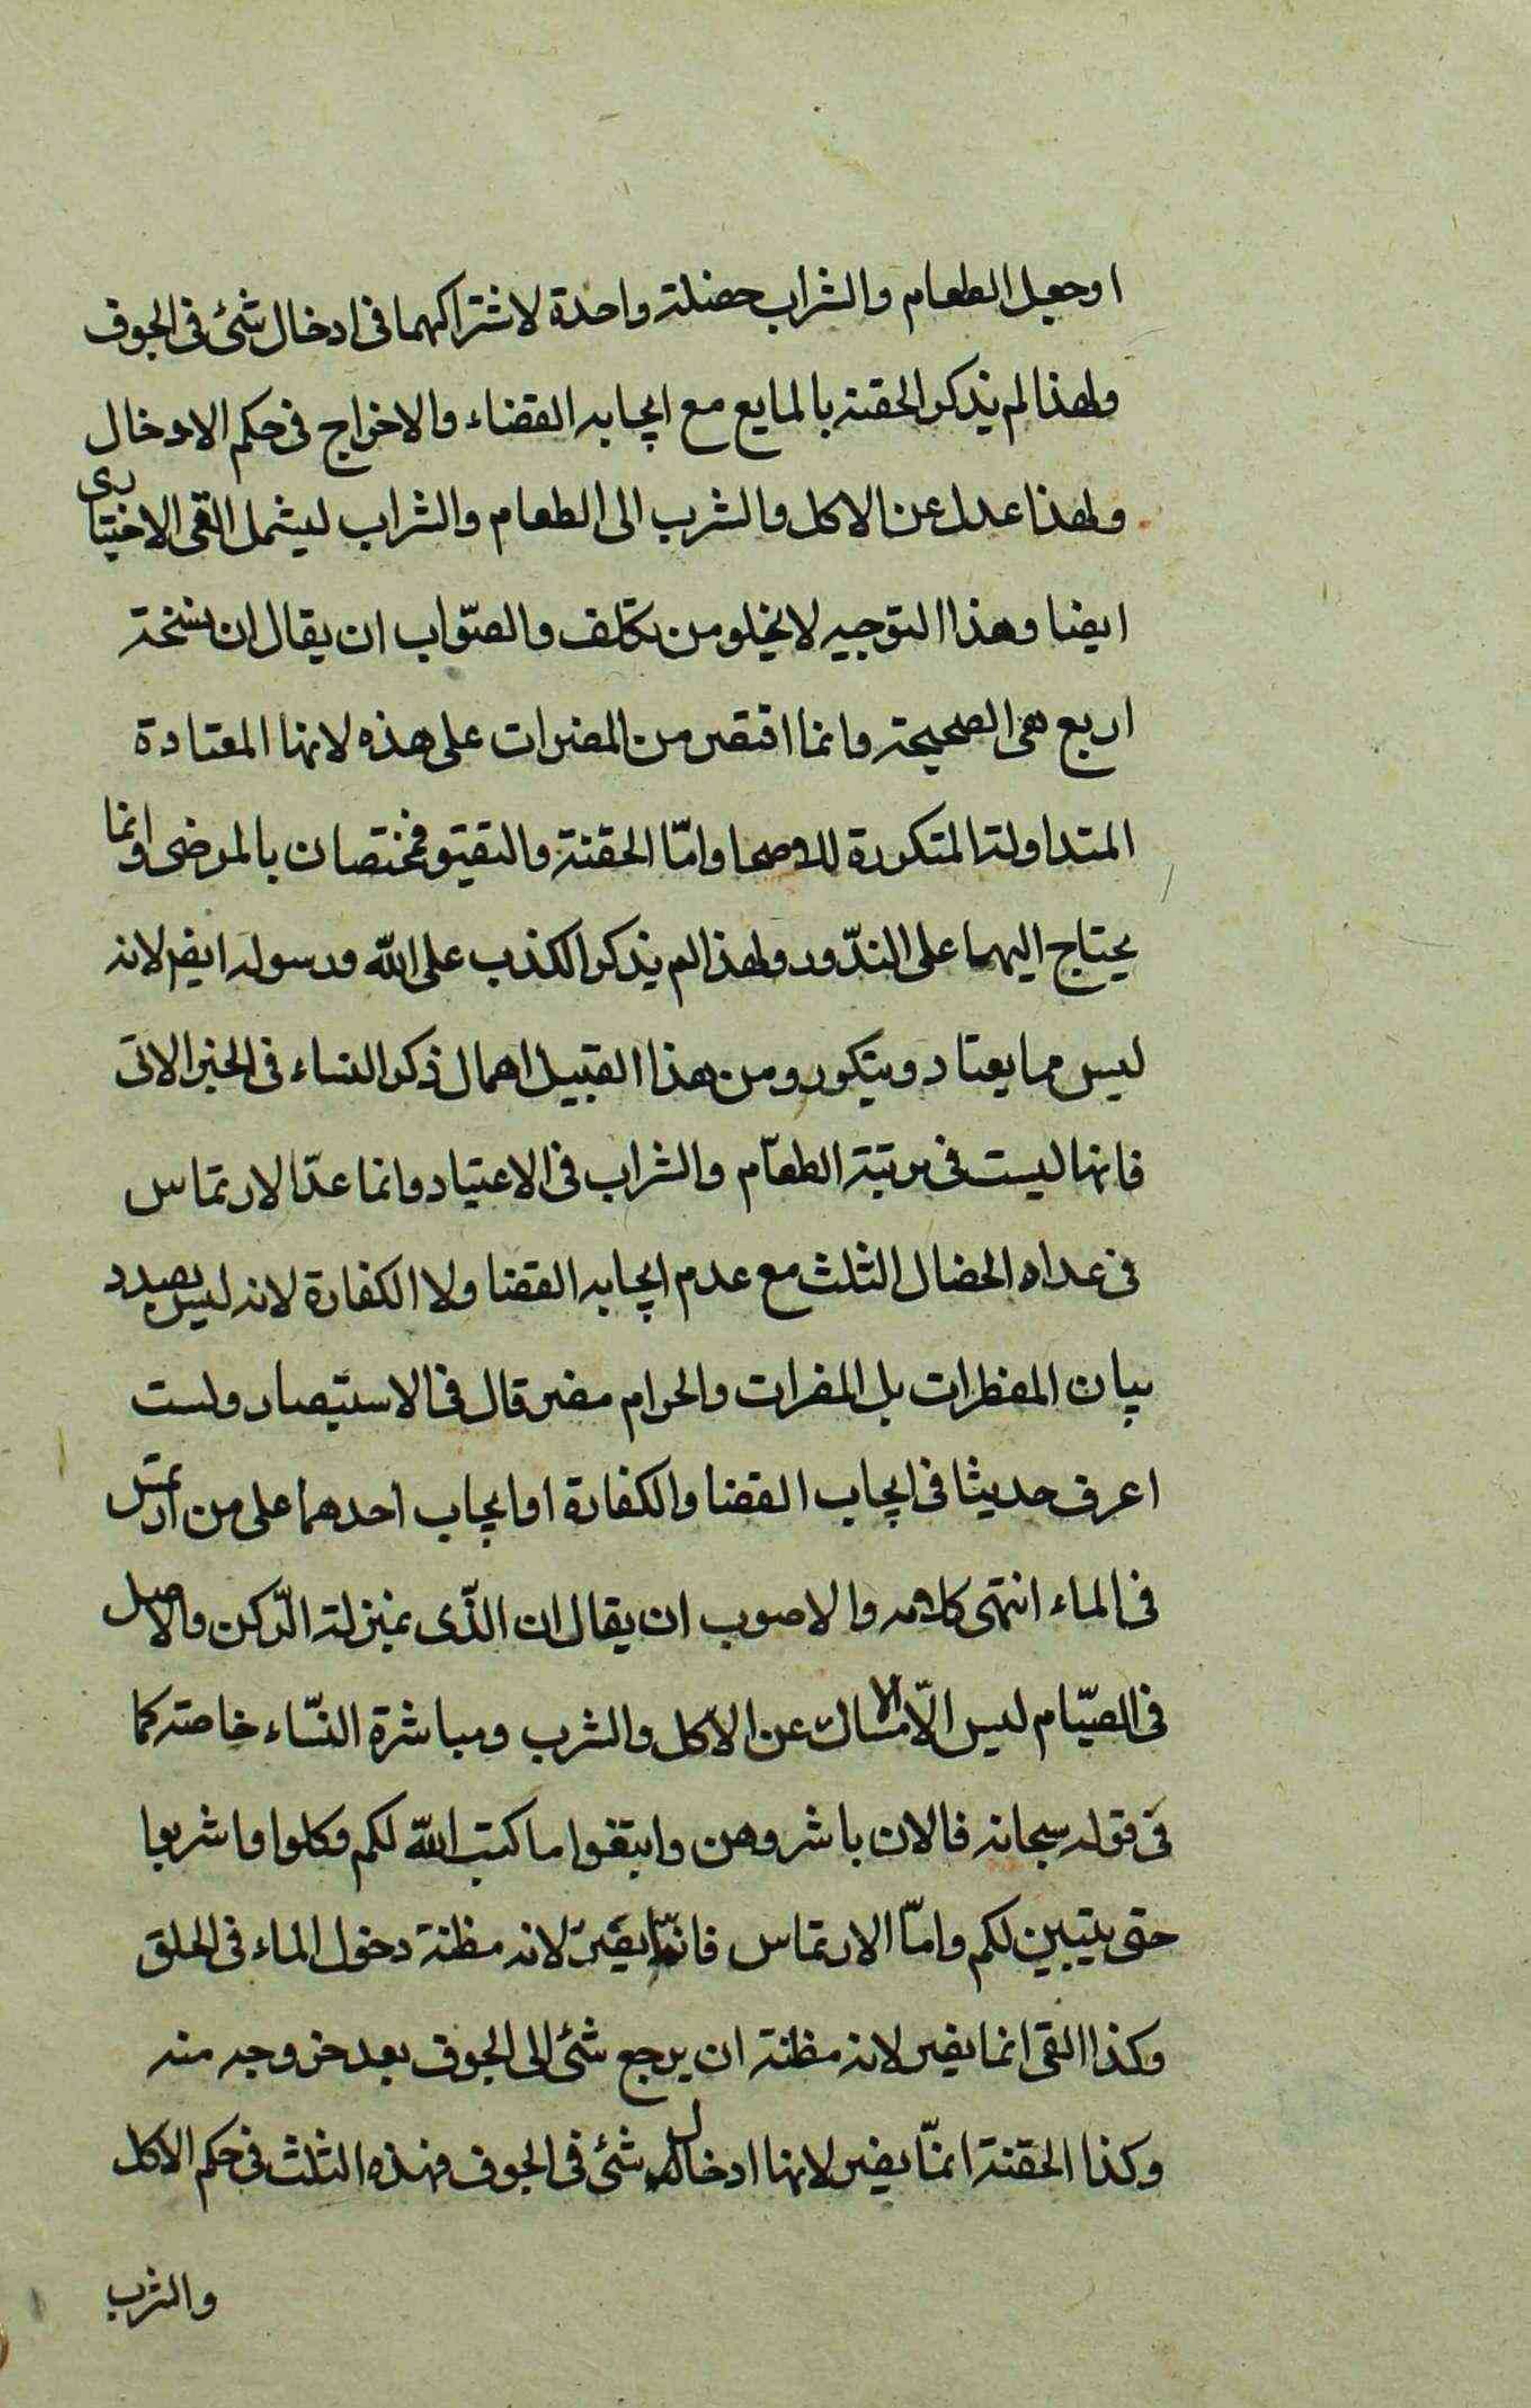 او جعل الطعام والشراب خصلة واحدة لاشتراكهما فى ادخال شئ فى الجوف
ولهذا لم يذكر الحقنة بالمايع مع ايجابه القضاء والاخراج فى حكم الادخال
ولهذا عدل عن الاكل والشرب الى الطعام والشراب ليشمل القى الاختيارى
ايضا وهذا التوجيه لا يخلو من تكلف والصّواب ان يقال ان نسخة
اربع هى الصحيحة وانما اقتصر من المضرات على هذه لانها المعتادة
المتداولة المتكررة للاصحا وامّا الحقنة والتقيؤ فمختصان بالمرضى وانما
يحتاج اليهما على الندّور ولهذا لم يذكر الكذب على الله ورسوله ايضا لانه
ليس مما يعتاد ويتكرر ومن هذا القبيل اهمال ذكر النساء فى الخبر الاتى
فانها ليست فى مرتبة الطعام والشراب فى الاعتياد وانما عدّ الارتماس
فى عداد الخصال الثلث مع عدم ايجابه القضا ولا الكفارة لانه ليس بصدد
بيان المفطرات بل المضرات والحرام مضر قال فى الاستبصار ولست
اعرف حديثا فى ايجاب القضا والكفارة او ايجاب احدهما على من ارتمس
فى الماء انتهى كلامه والاصوب ان يقال ان الذّى بمنزلة الرّكن والاصل
فى الصّيام ليس الّا الامساك عن الاكل والشرب ومباشرة النسّاء خاصة كما
فى قوله سبحانه فالان باشروهن وابتغوا ما كتب الله لكم وكلوا واشربوا
حتى يتبين لكم وامّا الارتماس فانمّا يضرّ لانه مظنة دخول الماء فى الحلق
وكذا القى انما يضر لانه مظنة ان يرجع شئ الى الجوف بعد خروجه منه
وكذا الحقنة انمّا يضر لانها ادخال شئ فى الجوف فهذه الثلث فى حكم الاكل
والشرب